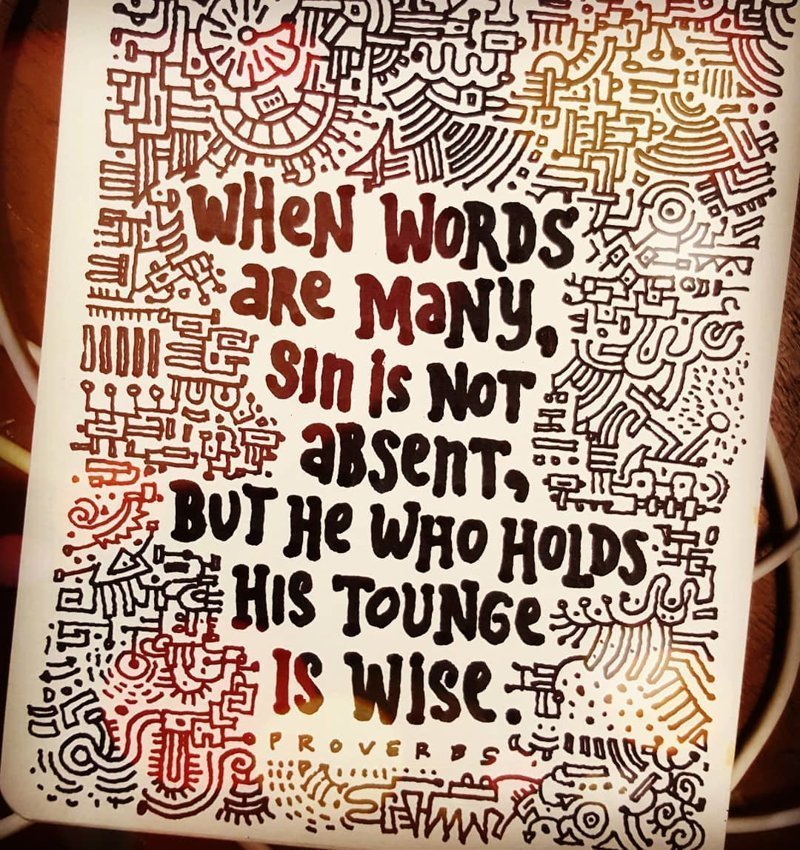 WHEN WORDS
are MaNY,
SIN is NOT
aBSeNT,
BUT He WHO HOLDS
HIS TOUNGe
IS WISe.
PROVERBS